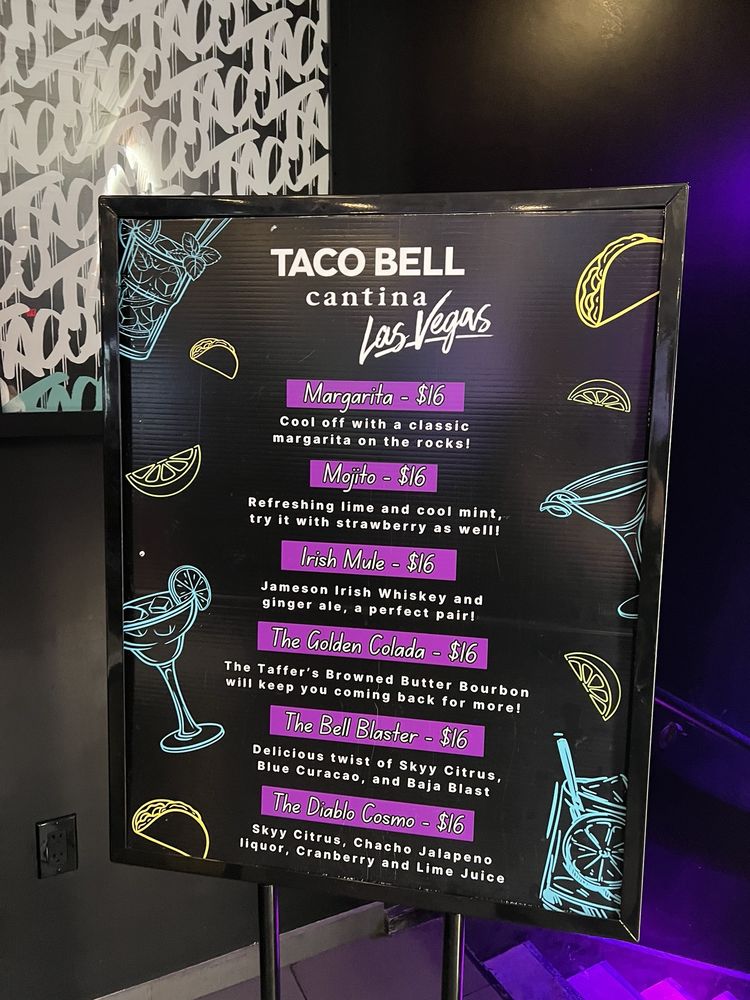 TACO BELL
cantina
Las Vegas
Margarita - $16
Cool off with a classic
margarita on the rocks!
Mojito - $16
Refreshing lime and cool mint,
try it with strawberry as well!
Irish Mule - $16
Jameson Irish Whiskey and
ginger ale, a perfect pair!
The Golden Colada - $16
The Taffer's Browned Butter Bourbon
will keep you coming back for more!
The Bell Blaster - $16
Delicious twist of Skyy Citrus,
Blue Curacao, and Baja Blast
The Diablo Cosmo - $16
Skyy Citrus, Chacho Jalapeno
liquor, Cranberry and Lime Juice